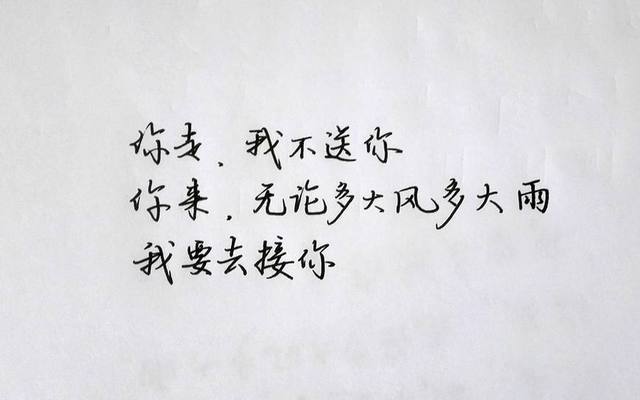 你走,我不送你
你来,无论多大风多大雨
我要去接你